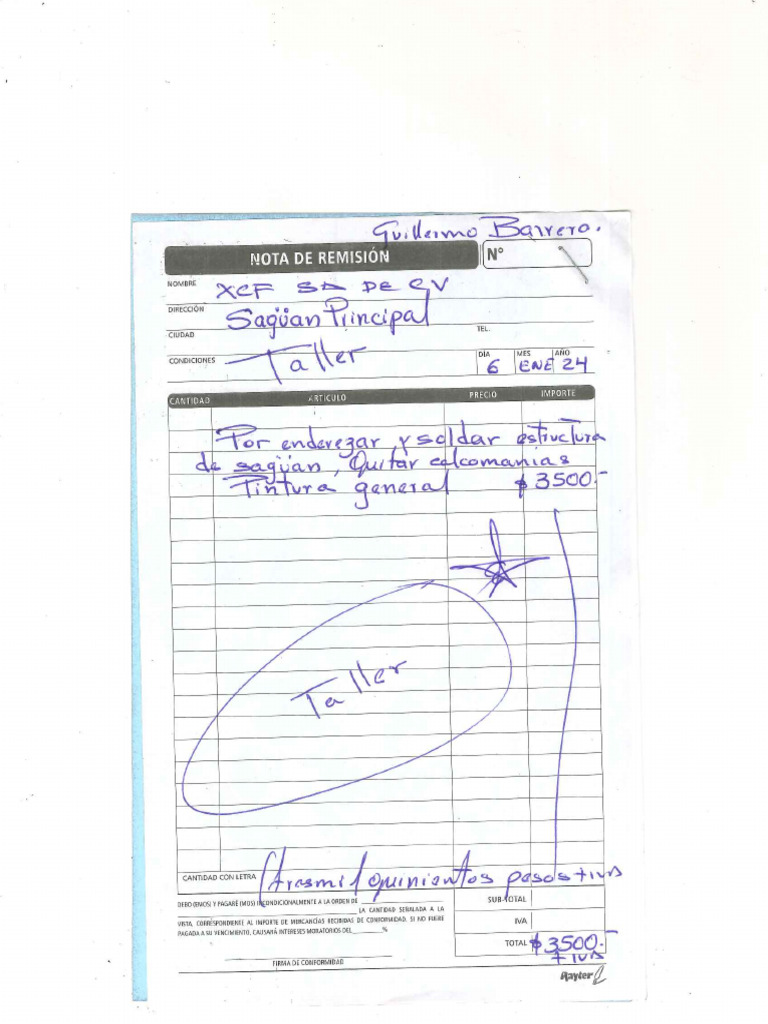 Guillermo Barrero.
NOTA DE REMISIÓN
N°
NOMBRE XCF SA DE CV
DIRECCIÓN Sagüan Principal
CIUDAD TEL.
CONDICIONES Taller
DÍA MES AÑO
6 ENE 24
CANTIDAD ARTICULO PRECIO IMPORTE
Por enderezar y soldar estructura
de sagüan, Quitar calcomanias
Pintura general $3500.-
Taller
CANTIDAD CON LETRA (tresmil quinientos pesos + IVA
DEBO (EMOS) Y PAGARÉ (MOS) INCONDICIONALMENTE A LA ORDEN DE
LA CANTIDAD SEÑALADA A LA
VISTA, CORRESPONDIENTE AL IMPORTE DE MERCANCÍAS RECIBIDAS DE CONFORMIDAD. SI NO FUERE
PAGADA A SU VENCIMIENTO, CAUSARÁ INTERESES MORATORIOS DEL %
SUB-TOTAL
IVA
TOTAL $3500.-
+ IVA
FIRMA DE CONFORMIDAD
Rayter